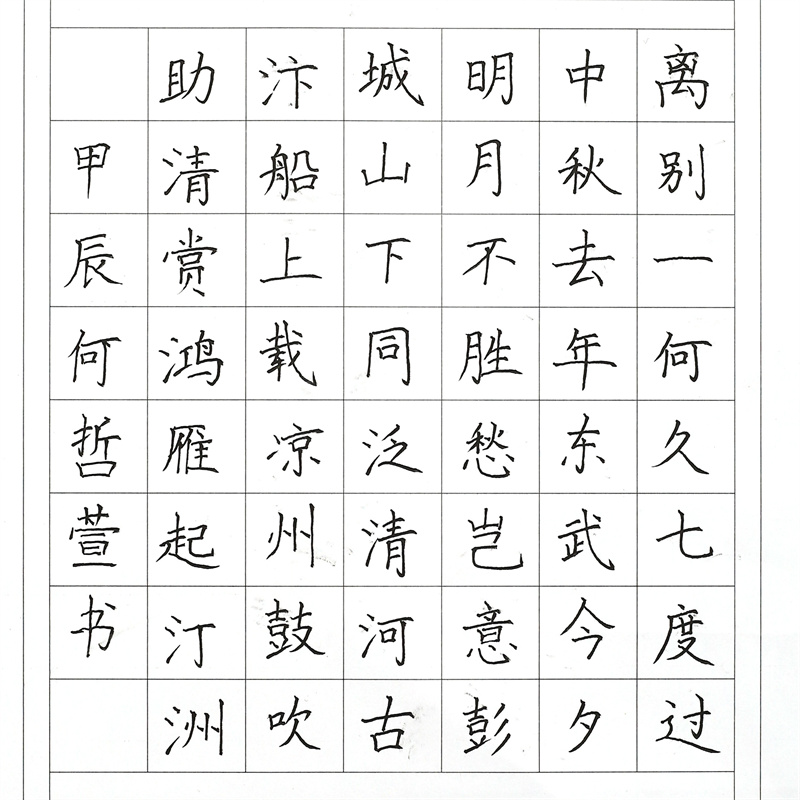 离别一何久七度过
中秋去年东武今夕
明月不胜愁岂意彭
城山下同泛清河古
汴船上载凉州鼓吹
助清赏鸿雁起汀洲
甲辰何哲萱书